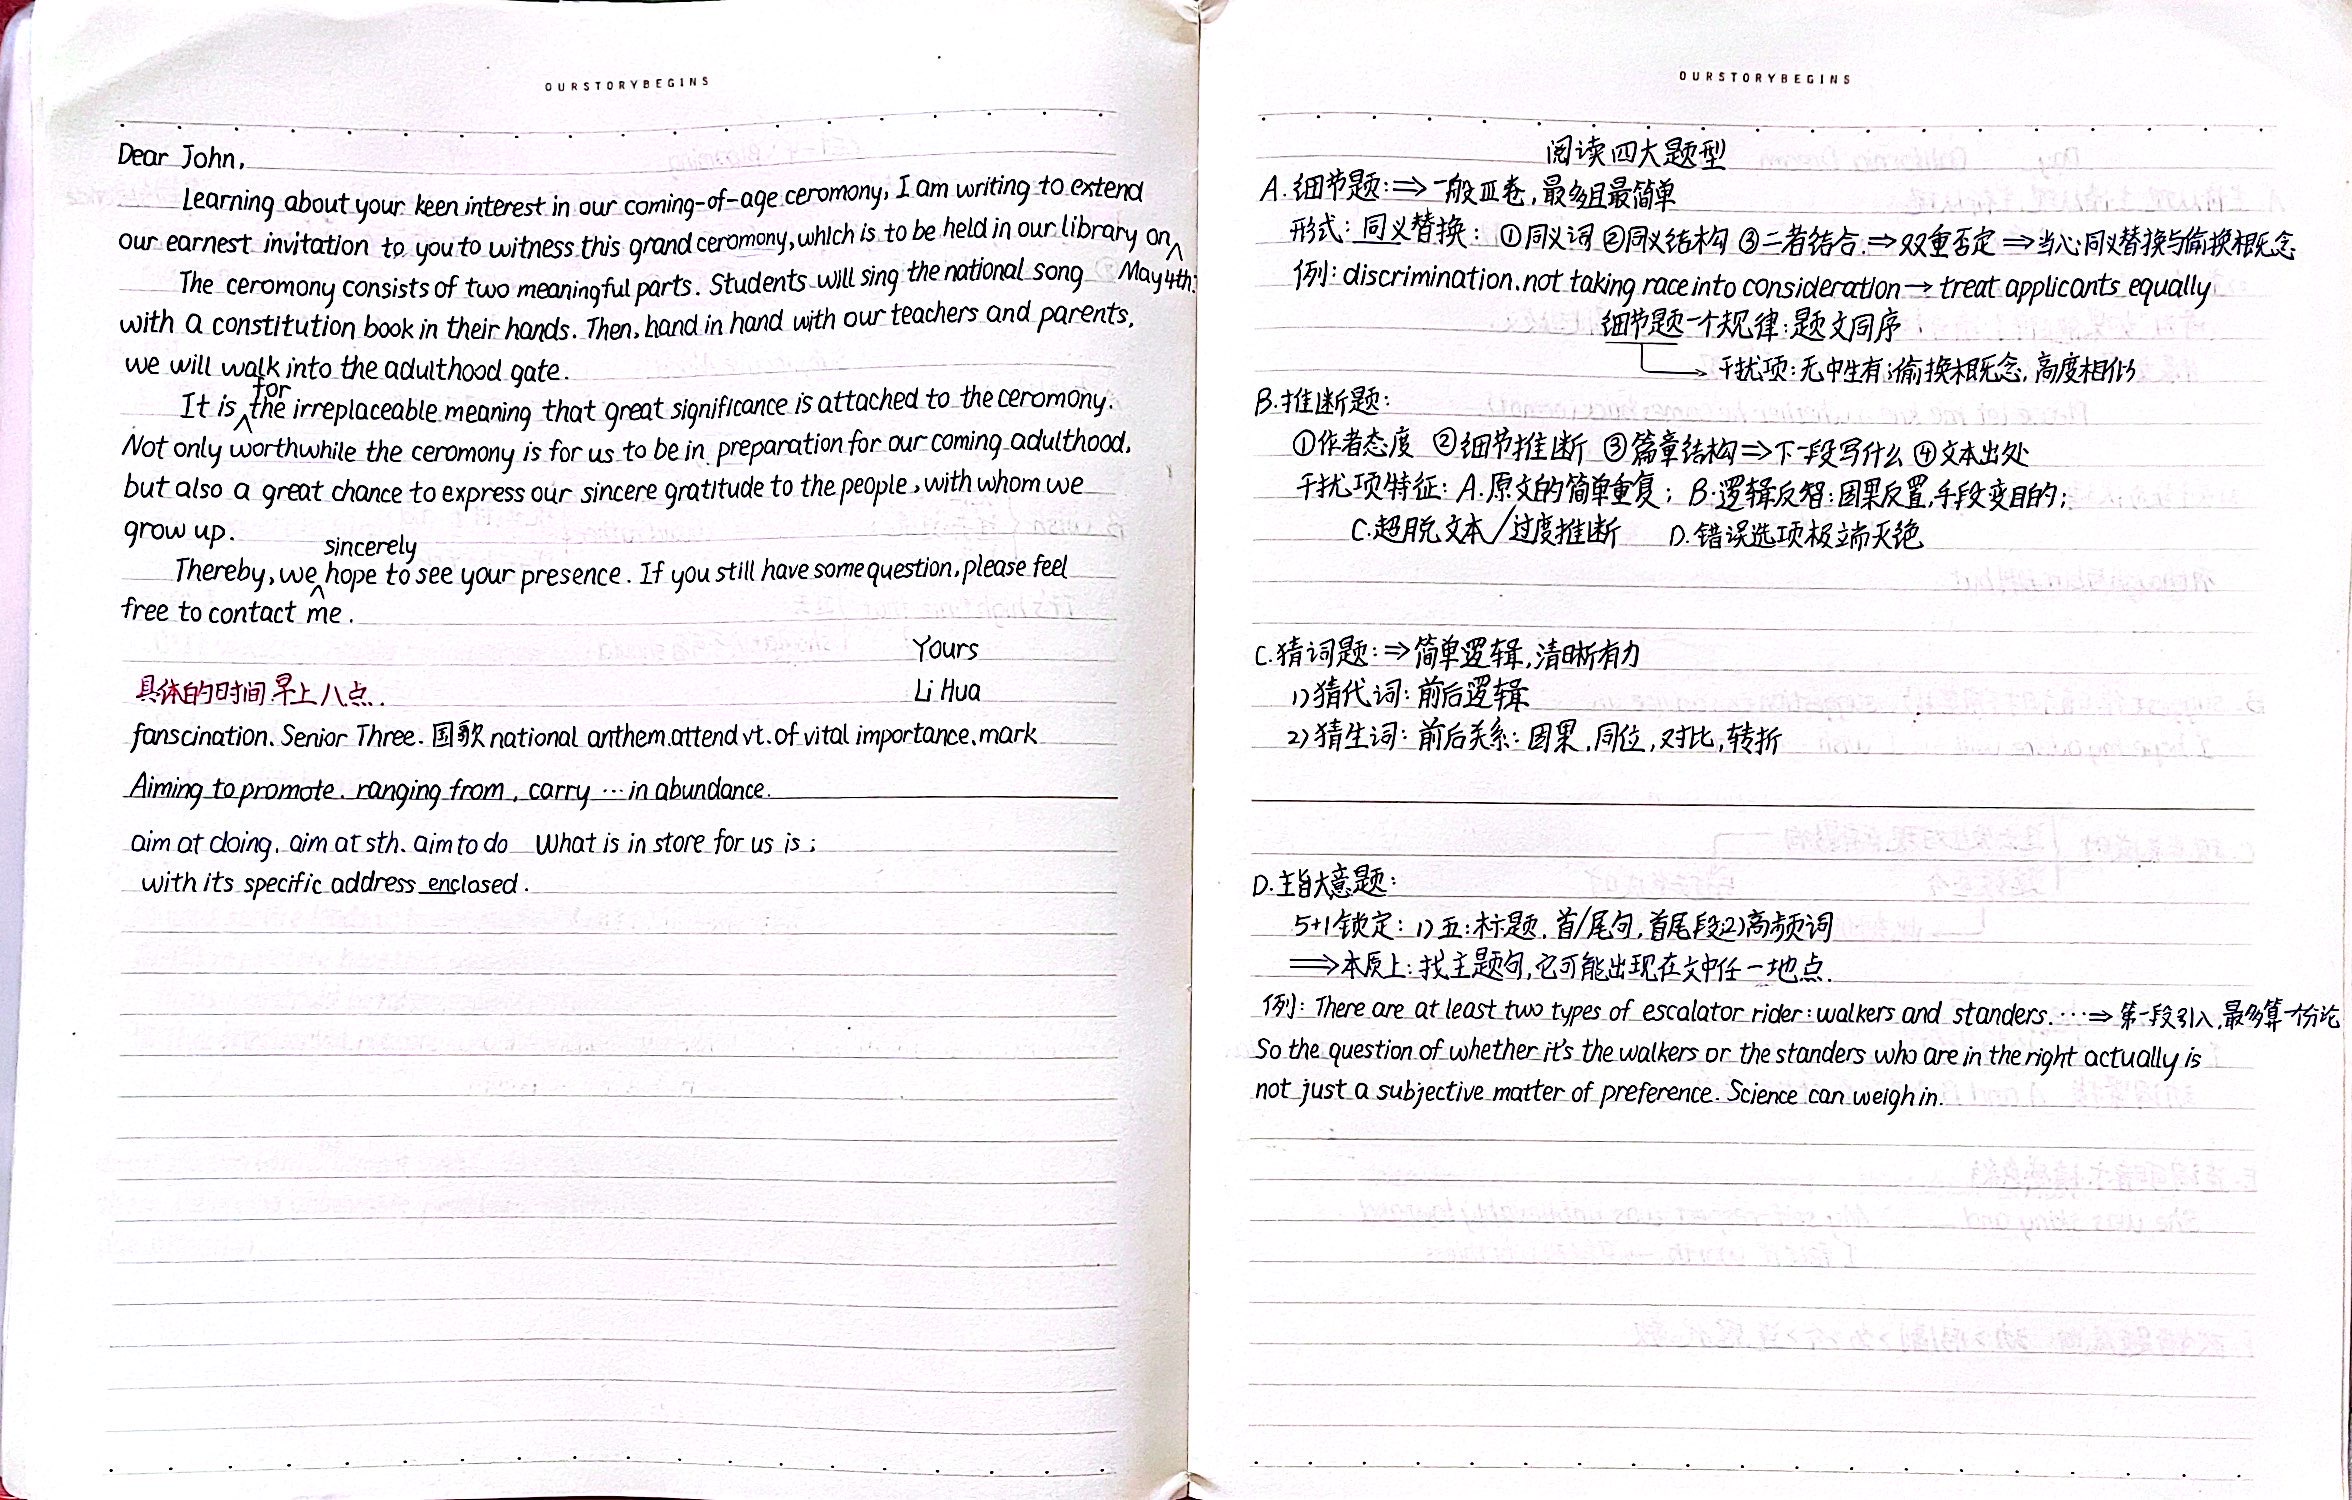 OURSTORYBEGINS
Dear John,
Learning about your keen interest in our coming-of-age ceromony, I am writing to extend
our earnest invitation to you to witness this grand ceromony, which is to be held in our library on
May 4th.
The ceromony consists of two meaningful parts. Students will sing the national song
with a constitution book in their hands. Then, hand in hand with our teachers and parents,
we will walk into the adulthood gate.
for
It is the irreplaceable meaning that great significance is attached to the ceromony.
Not only worthwhile the ceromony is for us to be in preparation for our coming adulthood,
but also a great chance to express our sincere gratitude to the people, with whom we
grow up.
sincerely
Thereby, we hope to see your presence. If you still have some question, please feel
free to contact me.
Yours
Li Hua
具体的时间 早上八点.
fanscination. Senior Three. 国歌 national anthem. attend vt. of vital importance. mark
Aiming to promote. ranging from, carry … in abundance.
aim at doing. aim at sth. aim to do What is in store for us is;
with its specific address enclosed.
OURSTORYBEGINS
阅读四大题型
A. 细节题: ⇒ 一般Ⅱ卷, 最多且最简单
形式: 同义替换: ①同义词 ②同义结构 ③二者结合 ⇒ 双重否定 ⇒ 当心同义替换与偷换概念
例: discrimination. not taking race into consideration → treat applicants equally
细节题一个规律: 题文同序
干扰项: 无中生有; 偷换概念, 高度相似
B. 推断题:
①作者态度 ②细节推断 ③篇章结构 ⇒ 下一段写什么 ④文本出处
干扰项特征: A. 原文的简单重复; B. 逻辑反智: 因果反置, 手段变目的;
C. 超脱文本/过度推断 D. 错误选项极端灭绝
C. 猜词题: ⇒ 简单逻辑, 清晰有力
1) 猜代词: 前后逻辑
2) 猜生词: 前后关系: 因果, 同位, 对比, 转折
D. 主旨大意题:
5+1锁定: 1) 五: 标题, 首/尾句, 首尾段 2) 高频词
⇒ 本质上: 找主题句, 它可能出现在文中任一地点.
例: There are at least two types of escalator rider: walkers and standers. … ⇒ 第一段引入, 最多算一个分论
So the question of whether it's the walkers or the standers who are in the right actually is
not just a subjective matter of preference. Science can weigh in.